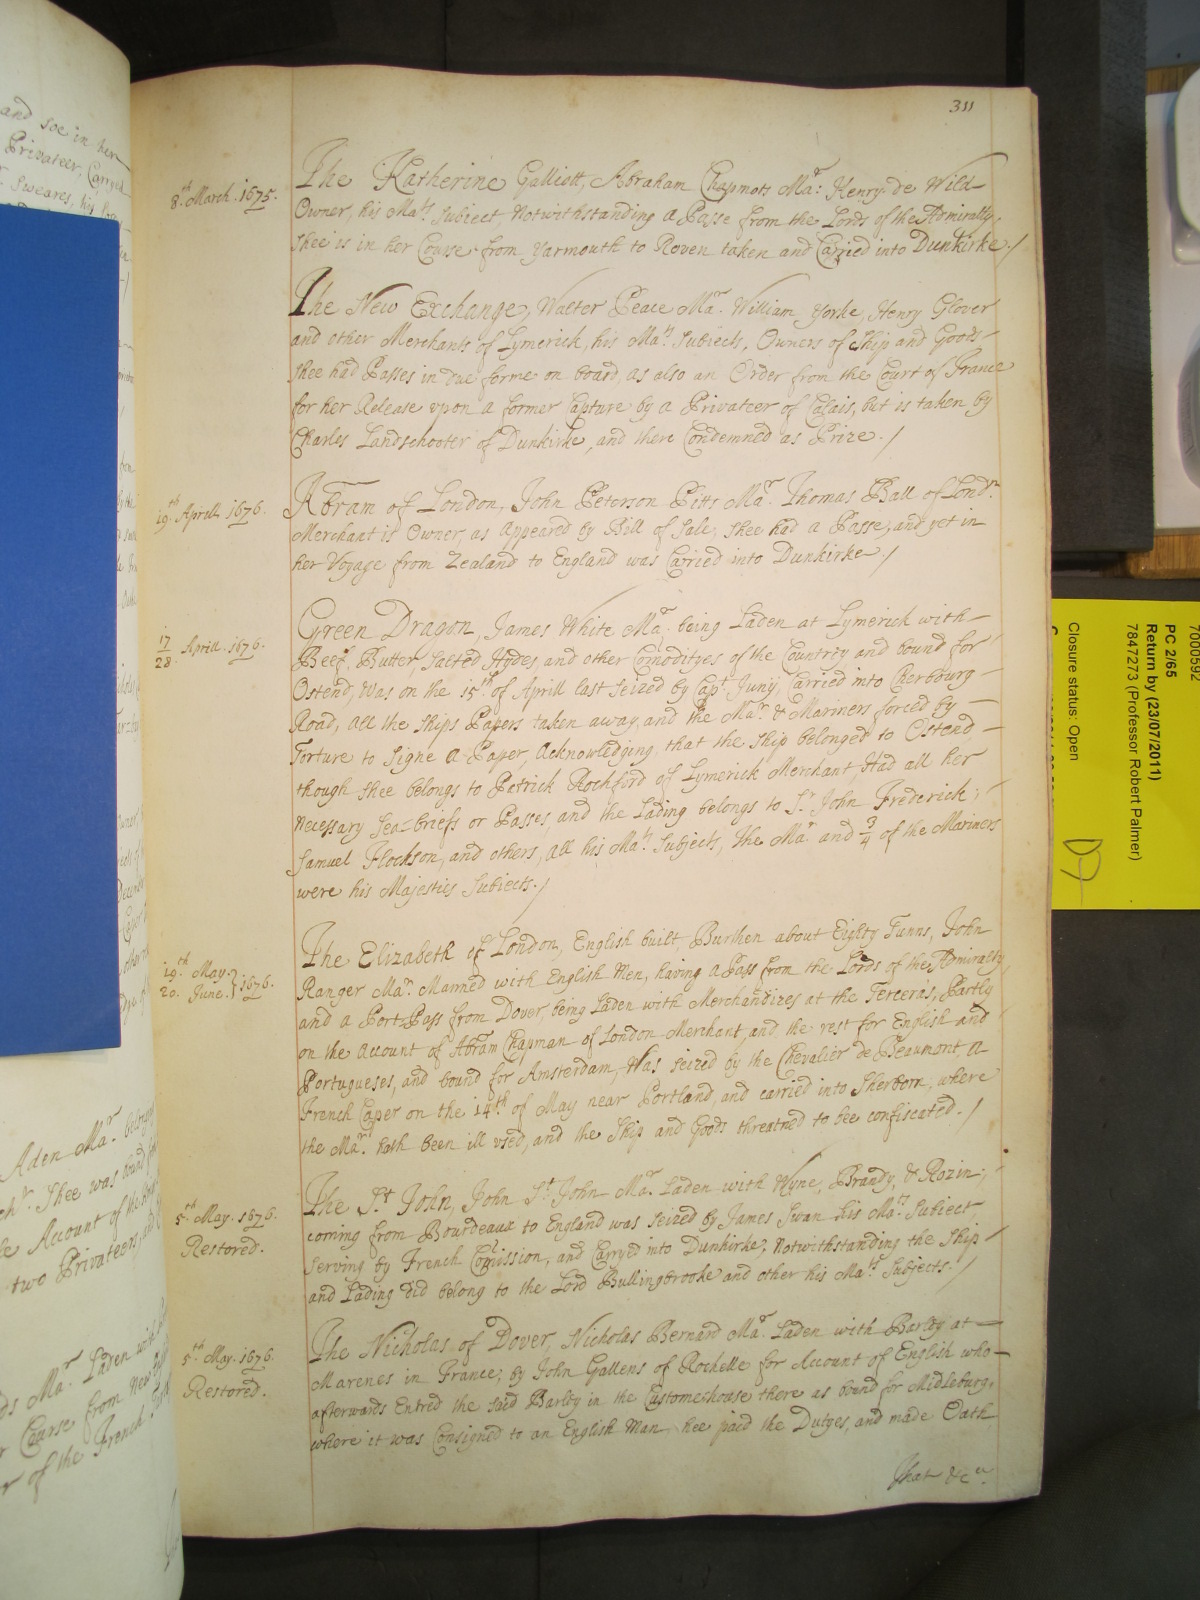 311
8th. March. 1675.
The Katherine Galliott, Abraham Chapmott Mar: Henry de Wild
Owner, his Mats. Subject, Notwithstanding a Passe from the Lords of the Admiralty,
shee is in her Course from Yarmouth to Roven taken and Carried into Dunkirke./
The New Exchange, Walter Peace Mar. William Yorke, Henry Glover
and other Merchants of Lymerick, his Mats. Subiects, Owners of Ship and Goods
shee had Passes in due forme on board, as also an Order from the Court of France
for her Release vpon a former Capture by a Privateer of Calais, but is taken by
Charles Landschooter of Dunkirke, and there Condemned as Prize./
19th. Aprill 1676.
Abram of London, John Peterson Pitts Mar. Thomas Ball of Londn.
Merchant is Owner, as appeared by Bill of Sale, shee had a Passe, and yet in
her Voyage from Zealand to England was Carried into Dunkirke./
17/28. Aprill. 1676.
Green Dragon, James White Mar. being Laden at Lymerick with
Beef, Butter, Salted Hydes, and other Comodityes of the Countrey and bound for
Ostend, Was on the 15th of Aprill last Seized by Capt. Juny, Carried into Cherbourg
Road, all the Ships Papers taken away, and the Mar. & Mariners forced by
Torture to Signe a Paper, Acknowledging that the Ship belonged to Ostend
though shee belongs to Patrick Rochford of Lymerick Merchant, Had all her
necessary Sea-briefs or Passes, and the Lading belongs to Sr. John Frederick,
Samuel Flockson, and others, all his Mats. Subjects, the Mar. and 3/4 of the Mariners
were his Majesties Subiects./
19th. May.
20. June. } 1676.
The Elizabeth of London, English built, Burthen about Eighty Tunns, John
Ranger Mar. Manned with English Men, having a Pass from the Lords of the Admiralty
and a Port-Pass from Dover, being Laden with Merchandizes at the Terceras, Partly
on the Account of Abram Chapman of London Merchant, and the rest for English and
Portugueses, and bound for Amsterdam, Was seized by the Chevalier de Beaumont, a
French Caper on the 14th of May near Portland, and carried into Sherborn, where
the Mar. hath been ill vsed, and the Ship and Goods threatned to bee confiscated./
5th. May. 1676.
Restored.
The St. John, John St. John Mar. Laden with Wyne, Brandy, & Rozin,
coming from Bourdeaux to England was Seized by James Swan his Mats. Subject
Serving by French Comission, and Carryed into Dunkirke, Notwithstanding the Ship
and Lading did belong to the Lord Bullingbrooke and other his Mats. Subjects./
5th. May. 1676.
Restored.
The Nicholas of Dover, Nicholas Bernard Mar. Laden with Barley at
Marenes in France, by John Gallens of Rochelle for Account of English who
afterwards Entred the said Barley in the Customehouse there as bound for Midleburg,
where it was Consigned to an English Man, hee paid the Dutyes, and made Oath
That &ca.
and soe in her
Privateer, Carryed
Sweares, his
Aden Mar.
Shee was bound
Account of the
two Privateers, and
Mar. Laden with
Course from New
of the French
7000592
PC 2/65
Return by (23/07/2011)
7847273 (Professor Robert Palmer)
Closure status: Open